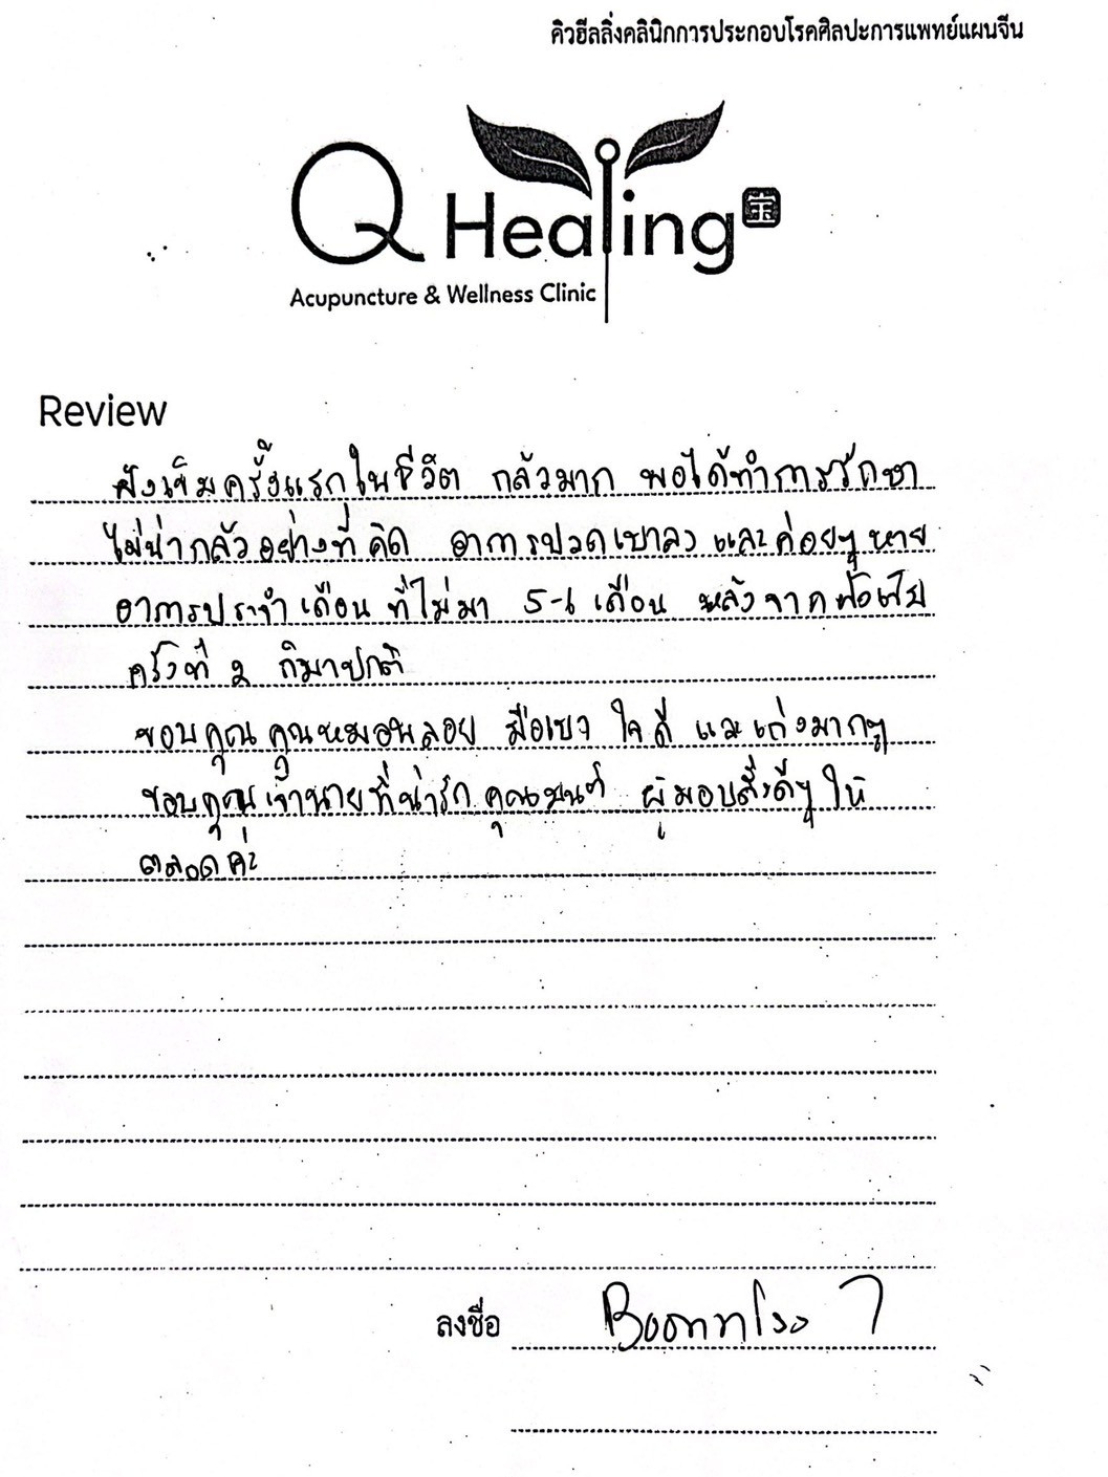 คิวฮีลลิ่งคลินิกการประกอบโรคศิลปะการแพทย์แผนจีน
Q Healing 宝
Acupuncture & Wellness Clinic
Review
ฝังเข็มครั้งแรกในชีวิต กลัวมาก พอได้ทำการรักษา
ไม่น่ากลัวอย่างที่คิด อาการปวดเบาลง และค่อยๆ หาย
อาการประจำเดือน ที่ไม่มา 5-6 เดือน หลังจากฝังเข็ม
ครั้งที่ 2 ก็มาปกติ
ขอบคุณ คุณหมอพลอย มือเบา ใจดี และเก่งมากๆ
ขอบคุณเจ้านายที่น่ารัก ผู้มอบสิ่งดีๆ ให้
ตลอดค่ะ
ลงชื่อ